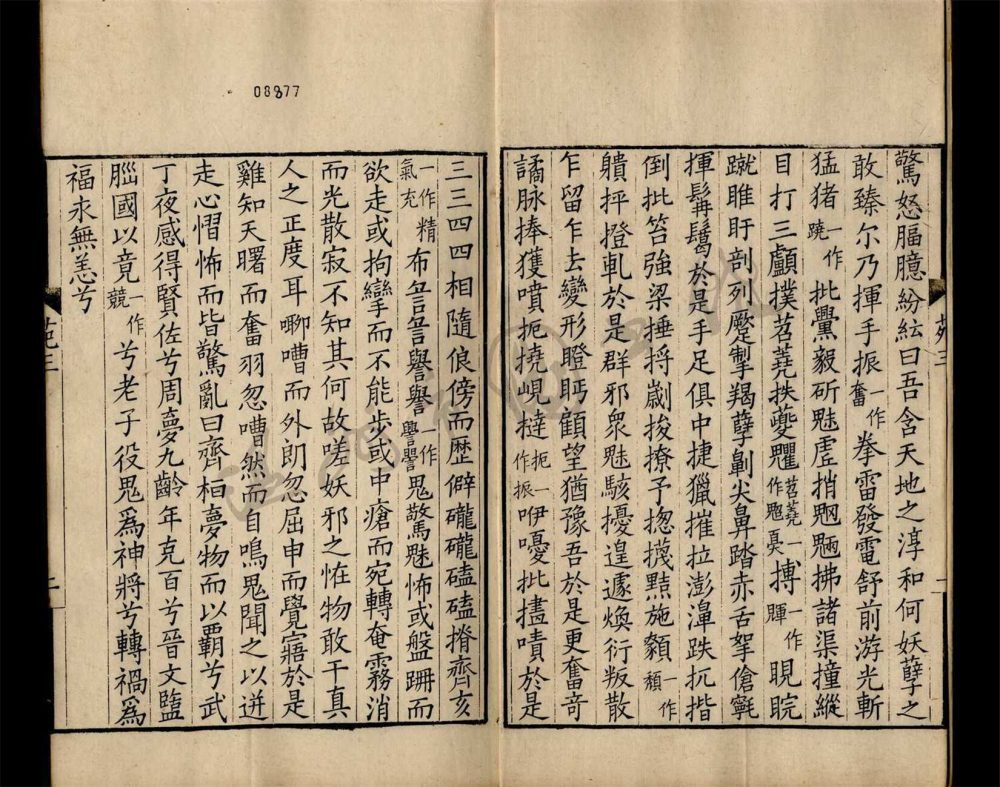 08977
驚怒腷臆紛紜曰吾含天地之淳和何妖孽之
敢臻尔乃揮手振一作奮拳雷發電舒前游光斬
猛猪一作蹺批㸑毅斫魅虛捎魍魎拂諸渠撞縱
目打三顱撲苕蕘抶夔魖苕蕘一作魍㚟搏一作睴睍睆
蹴睢盱剖列蹷掣羯孽劓尖鼻踏赤舌挐傖髶
揮髯鬄於是手足俱中捷獵摧拉澎濞跌抗揩
倒批笞強梁捶捋劌捘撩予揔㩳㸃施䫥一作頯
軉抨撜軋於是群邪衆魅駭擾遑遽煥衍叛散
乍留乍去變形瞪眄顧望猶豫吾於是更奮奇
譎脉捧獲噴扼撓峴撻扼一作振咿嚘批㩆嘖於是
三三四四相隨俍傍而歷僻礲礲磕磕㨈齊亥
一作精氣充布訇訇譽譽一作譻譻鬼驚魅怖或盤跚而
欲走或拘攣而不能步或中瘡而宛轉奄霧消
而光散寂不知其何故嗟妖邪之怪物敢干真
人之正度耳嘲嘈而外朗忽屈申而覺寤於是
雞知天曙而奮羽忽嘈然而自鳴鬼聞之以迸
走心慴怖而皆驚亂曰齊桓夢物而以霸兮武
丁夜感得賢佐兮周夢九齡年克百兮晉文盬
腦國以竟一作競兮老子役鬼爲神將兮轉禍爲
福永無恙兮
苑三
苑三